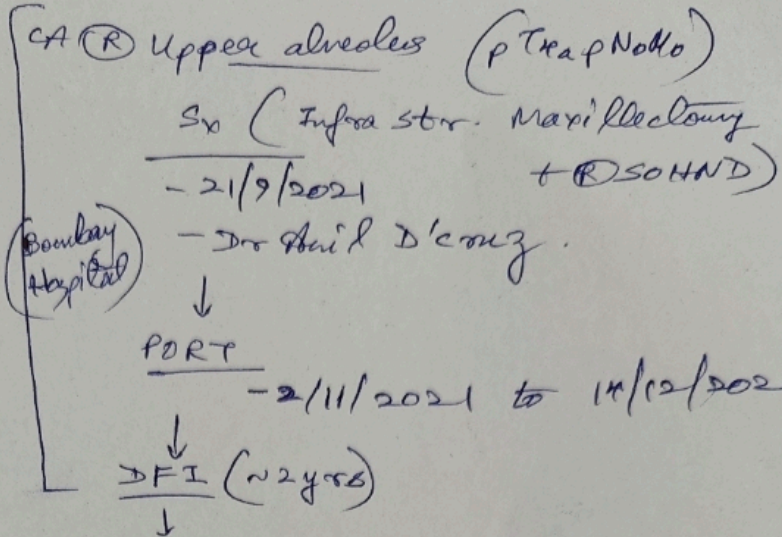 CA Ⓡ Upper alveolus (pT4a pN0M0)
Sx ( Infra str. Maxillectomy
+ Ⓡ SOHND)
- 21/9/2021
(Bombay Hospital)
- Dr Anil D'cruz.
↓
PORT
- 2/11/2021 to 14/12/202
↓
DFI (~2yrs)
↓